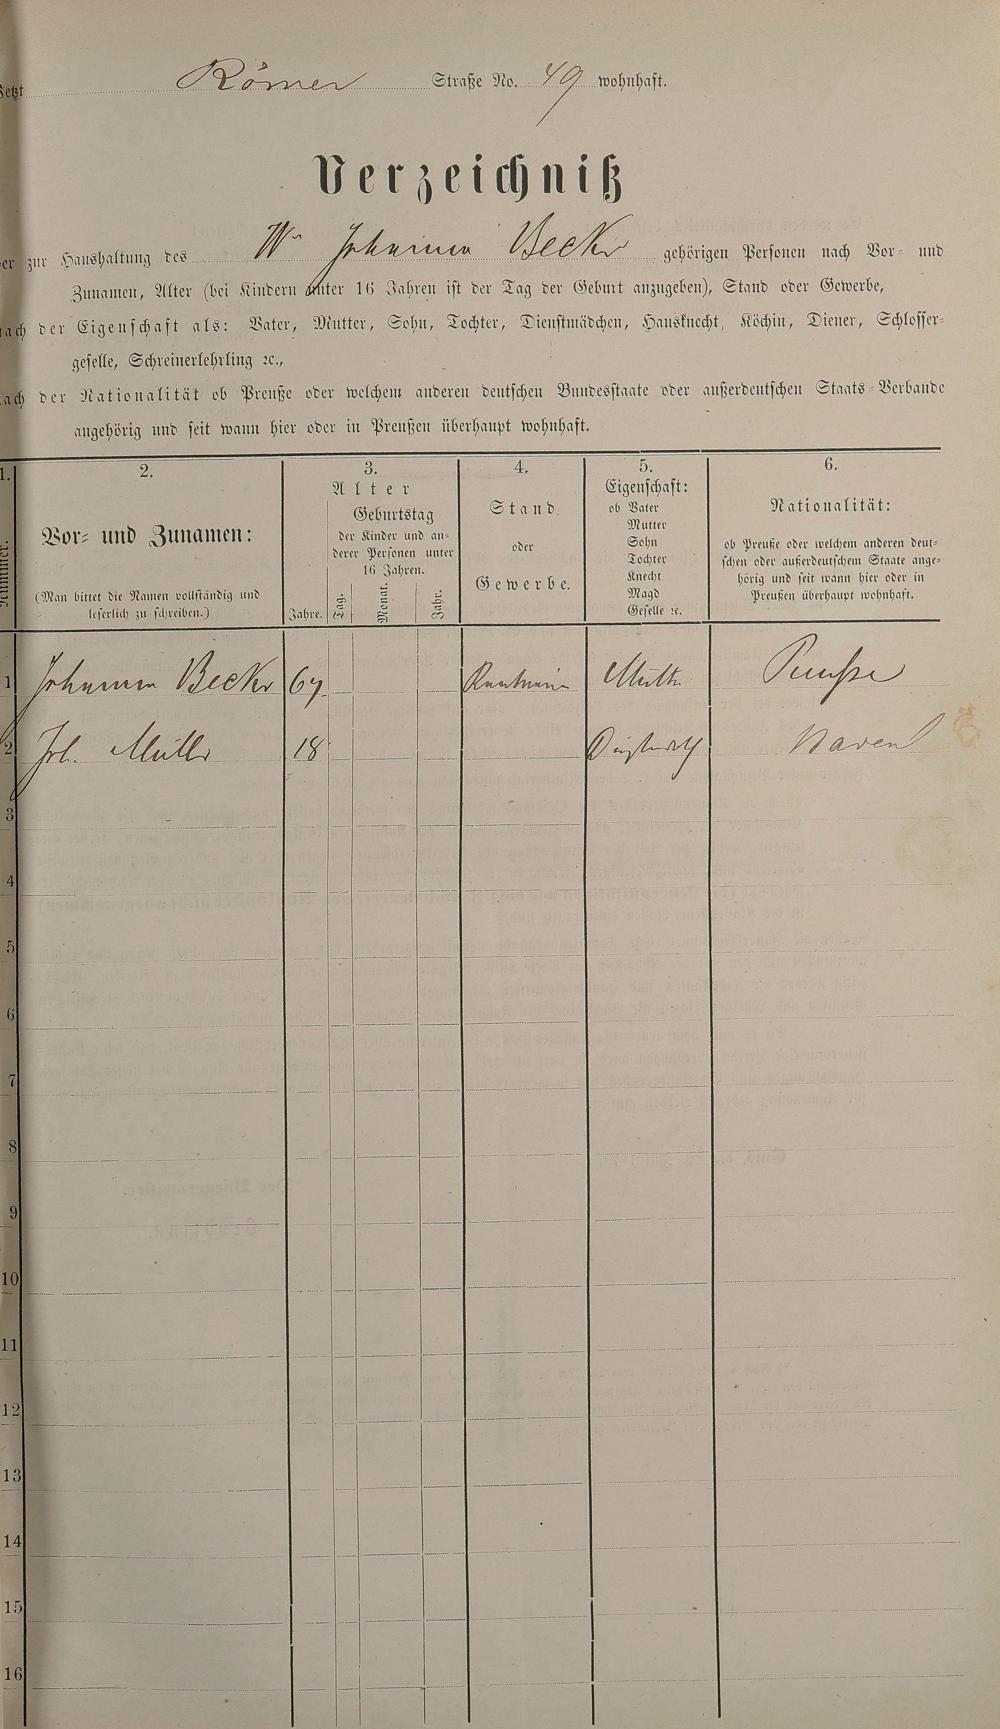 Jetzt Römer Straße No. 49 wohnhaft.
Verzeichniß
der zur Haushaltung des Ww Johanna Becker gehörigen Personen nach Vor- und
Zunamen, Alter (bei Kindern unter 16 Jahren ist der Tag der Geburt anzugeben), Stand oder Gewerbe,
nach der Eigenschaft als: Vater, Mutter, Sohn, Tochter, Dienstmädchen, Hausknecht, Köchin, Diener, Schlosser-
geselle, Schreinerlehrling ꝛc.,
nach der Nationalität ob Preuße oder welchem anderen deutschen Bundesstaate oder außerdeutschen Staats-Verbande
angehörig und seit wann hier oder in Preußen überhaupt wohnhaft.
1. 2. 3. 4. 5. 6.
Nummer.
Vor- und Zunamen:
(Man bittet die Namen vollständig und
leserlich zu schreiben.)
Alter
Jahre.
Geburtstag
der Kinder und an-
derer Personen unter
16 Jahren.
Tag. Monat. Jahr.
Stand
oder
Gewerbe.
Eigenschaft:
ob Vater
Mutter
Sohn
Tochter
Knecht
Magd
Geselle ꝛc.
Nationalität:
ob Preuße oder welchem anderen deut-
schen oder außerdeutschem Staate ange-
hörig und seit wann hier oder in
Preußen überhaupt wohnhaft.
1 Johanna Becker 67 Rentnerin Mutter Preuße
2 Joh. Müller 18
3
4
5
6
7
8
9
10
11
12
13
14
15
16